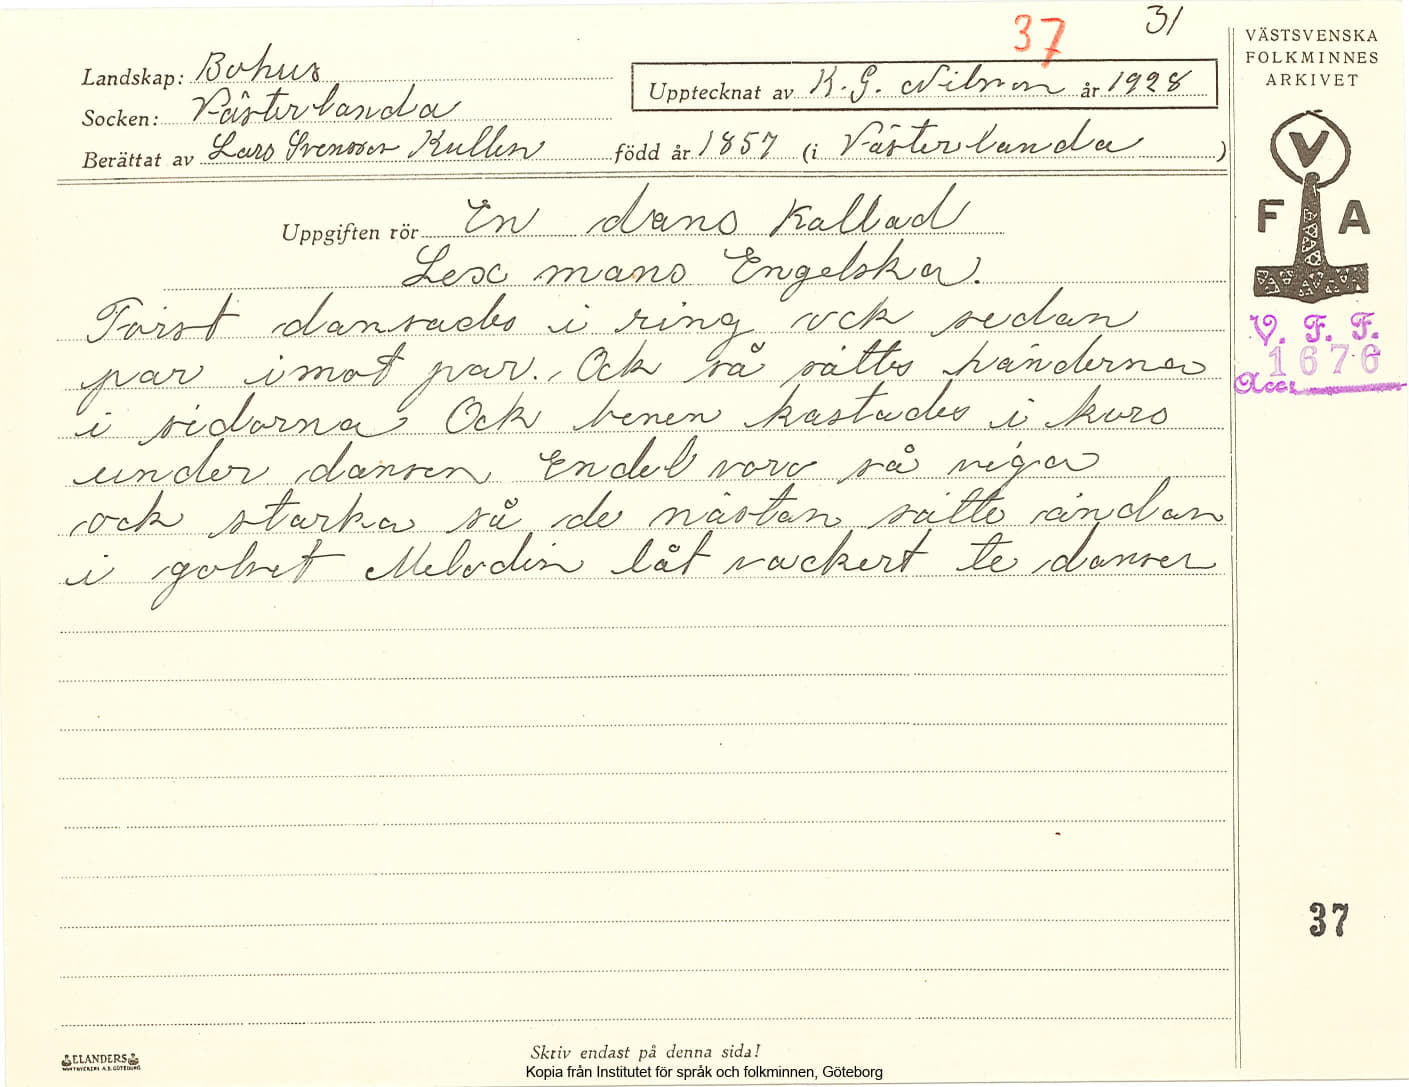 37
31
VÄSTSVENSKA
FOLKMINNES
ARKIVET
Landskap: Bohus
Upptecknat av K. G. Nilsson år 1928
Socken: Västerlanda
Berättat av Lars Svensson Kullen född år 1857 (i Västerlanda)
V
F A
Uppgiften rör En dans kallad
Sex mans Engelska.
Först dansades i ring ock sedan
par imot par. Ock så sättes händerna
i sidorna Ock benen kastades i kors
under dansen Endel voro så viga
ock starka så de nästan satte ändan
i golvet Melodin låt vackert te dansen
V. F. F.
1676
Acc.
37
ELANDERS
BOKTRYCKERI A.B. GÖTEBORG
Skriv endast på denna sida!
Kopia från Institutet för språk och folkminnen, Göteborg